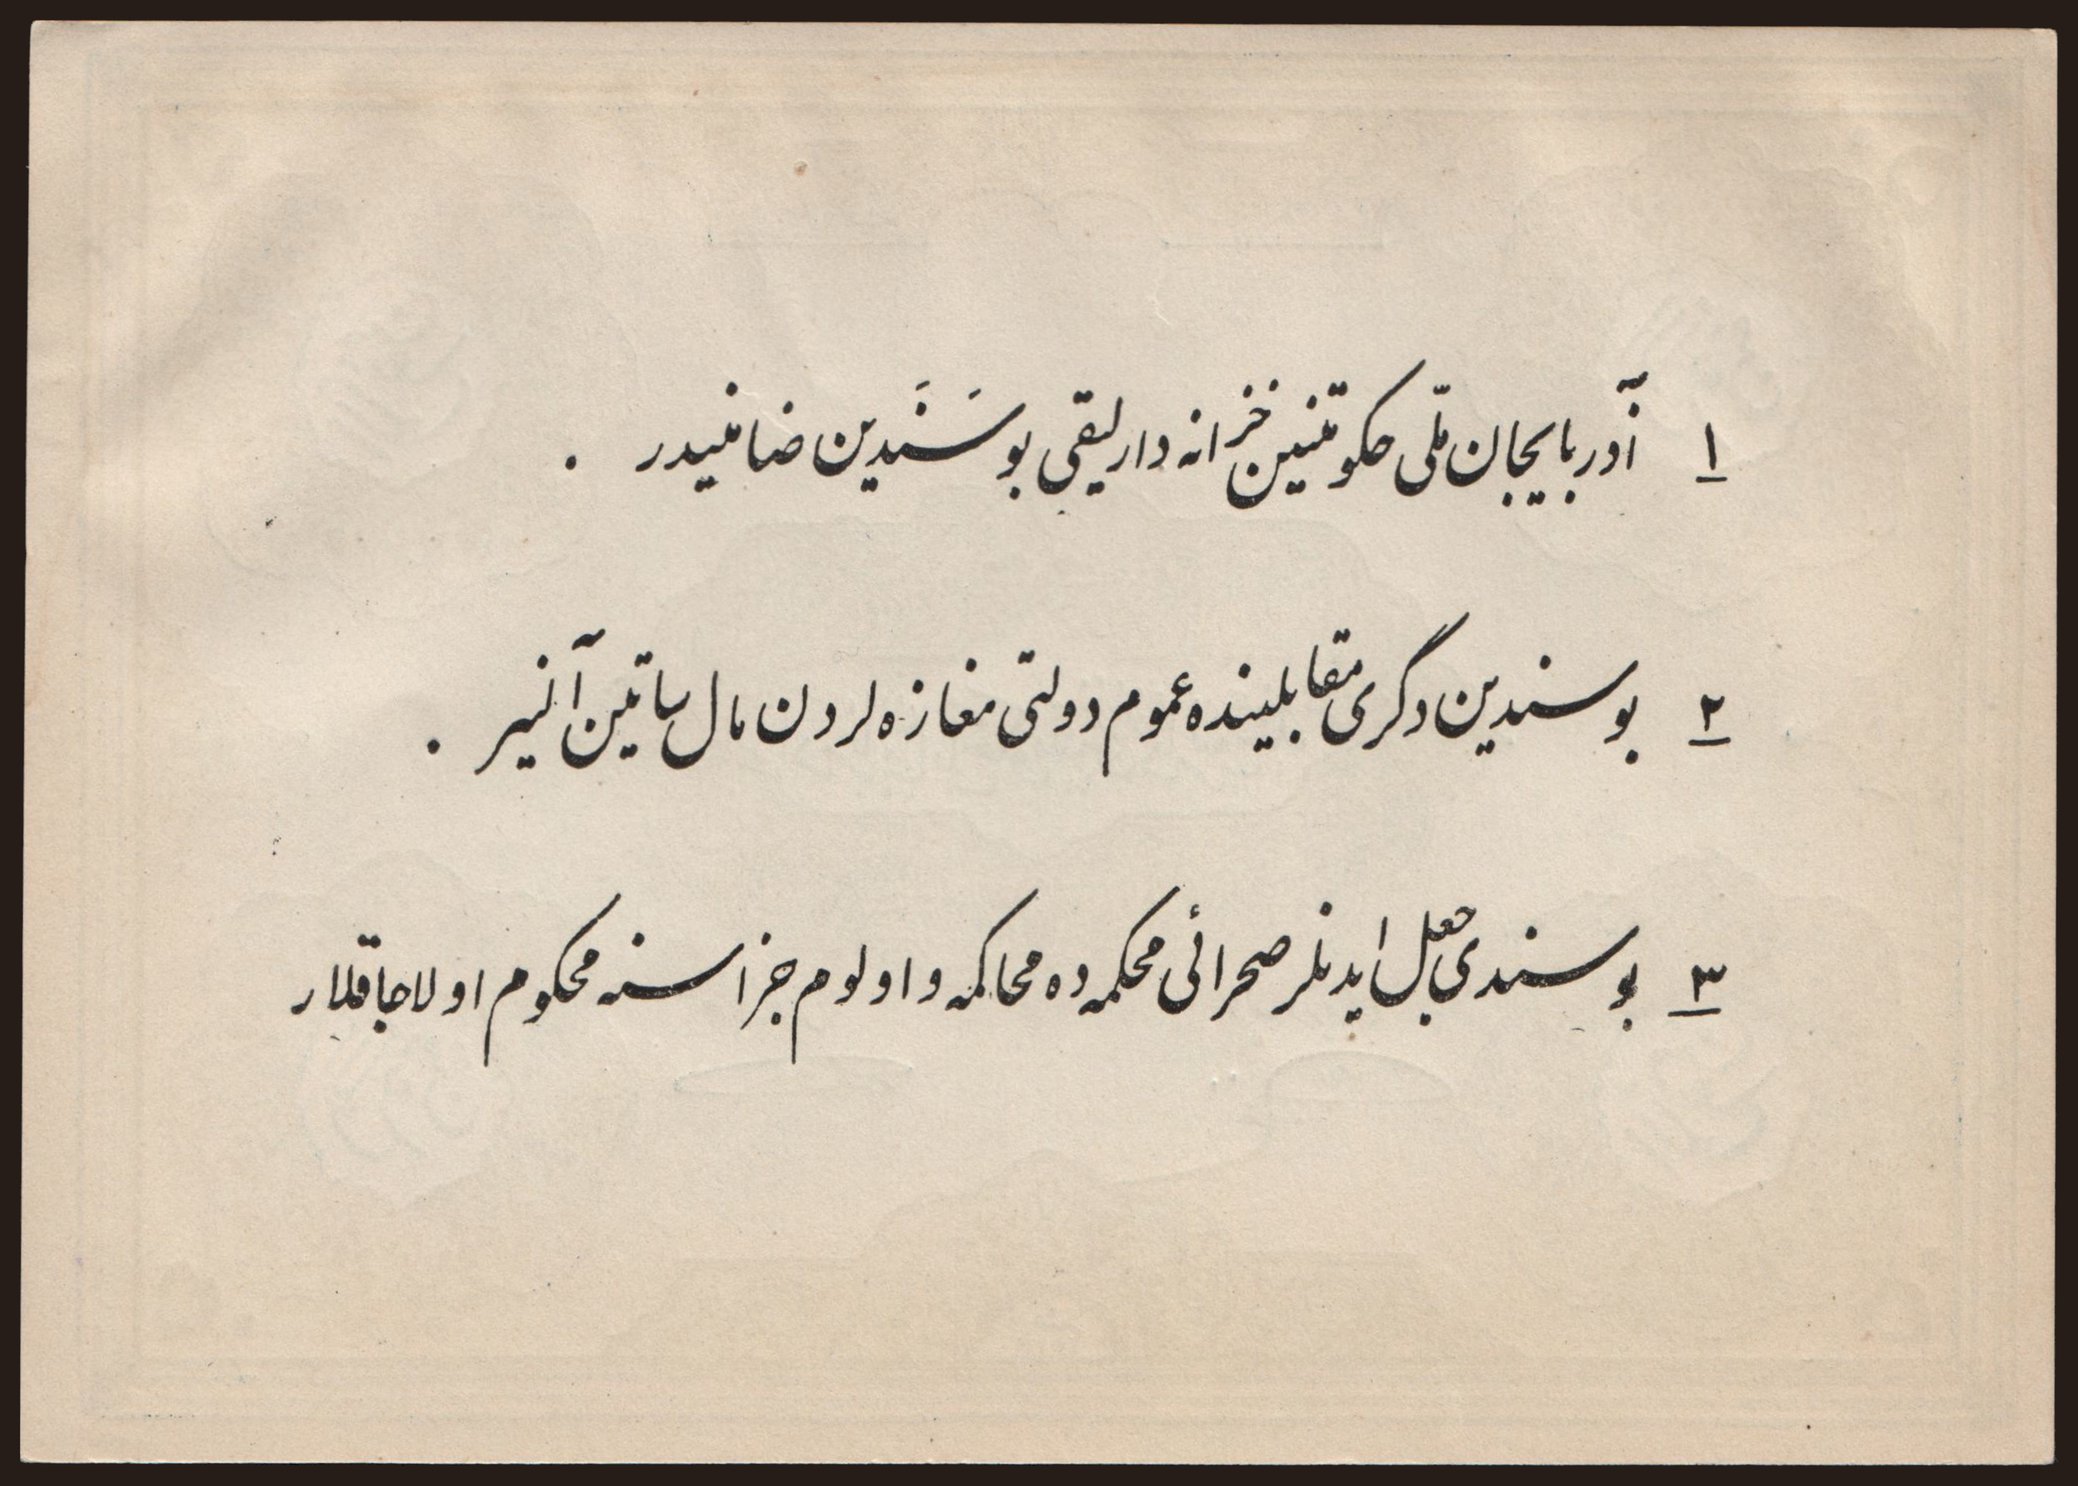 ۱ آذربایجان ملّی حکومتنین خزانه دارلیقی بو سَنَدین ضامنیدر .
۲ بو سندین دگری مقابلینده عموم دولتی مغازه لردن مال ساتین آلنیر .
۳ بو سندی جعل ایدنلر صحرائی محکمه ده محاکمه و اولوم جزاسنه محکوم اولاجاقلار